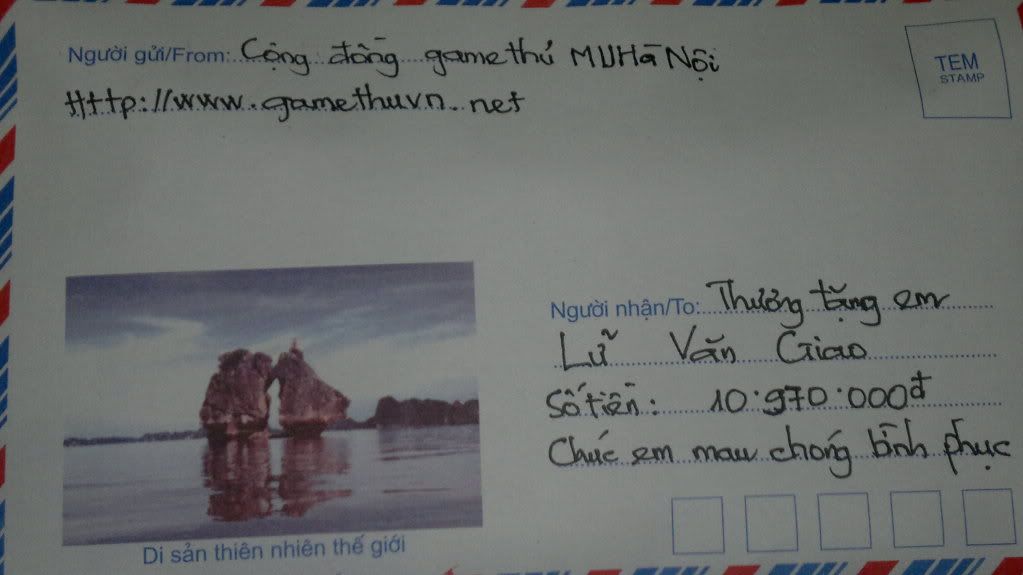 Người gửi/From: Cộng đồng game thủ MUHà Nội
Http://www.gamethuvn.net
TEM
STAMP
Người nhận/To: Thương tặng em
Lữ Văn Giao
Số tiền: 10.970.000đ
Chúc em mau chóng bình phục
Di sản thiên nhiên thế giới